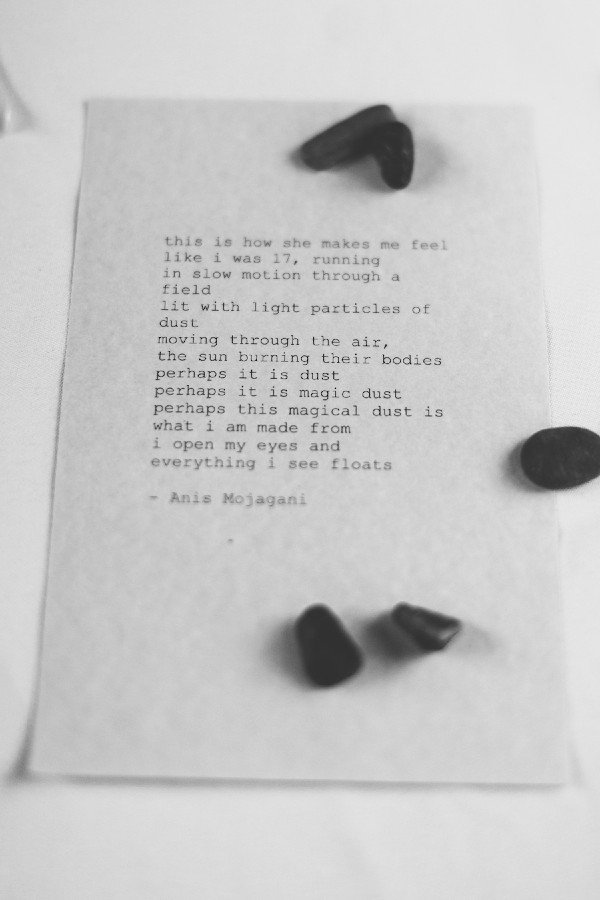 this is how she makes me feel
like i was 17, running
in slow motion through a
field
lit with light particles of
dust
moving through the air,
the sun burning their bodies
perhaps it is dust
perhaps it is magic dust
perhaps this magical dust is
what i am made from
i open my eyes and
everything i see floats
- Anis Mojagani